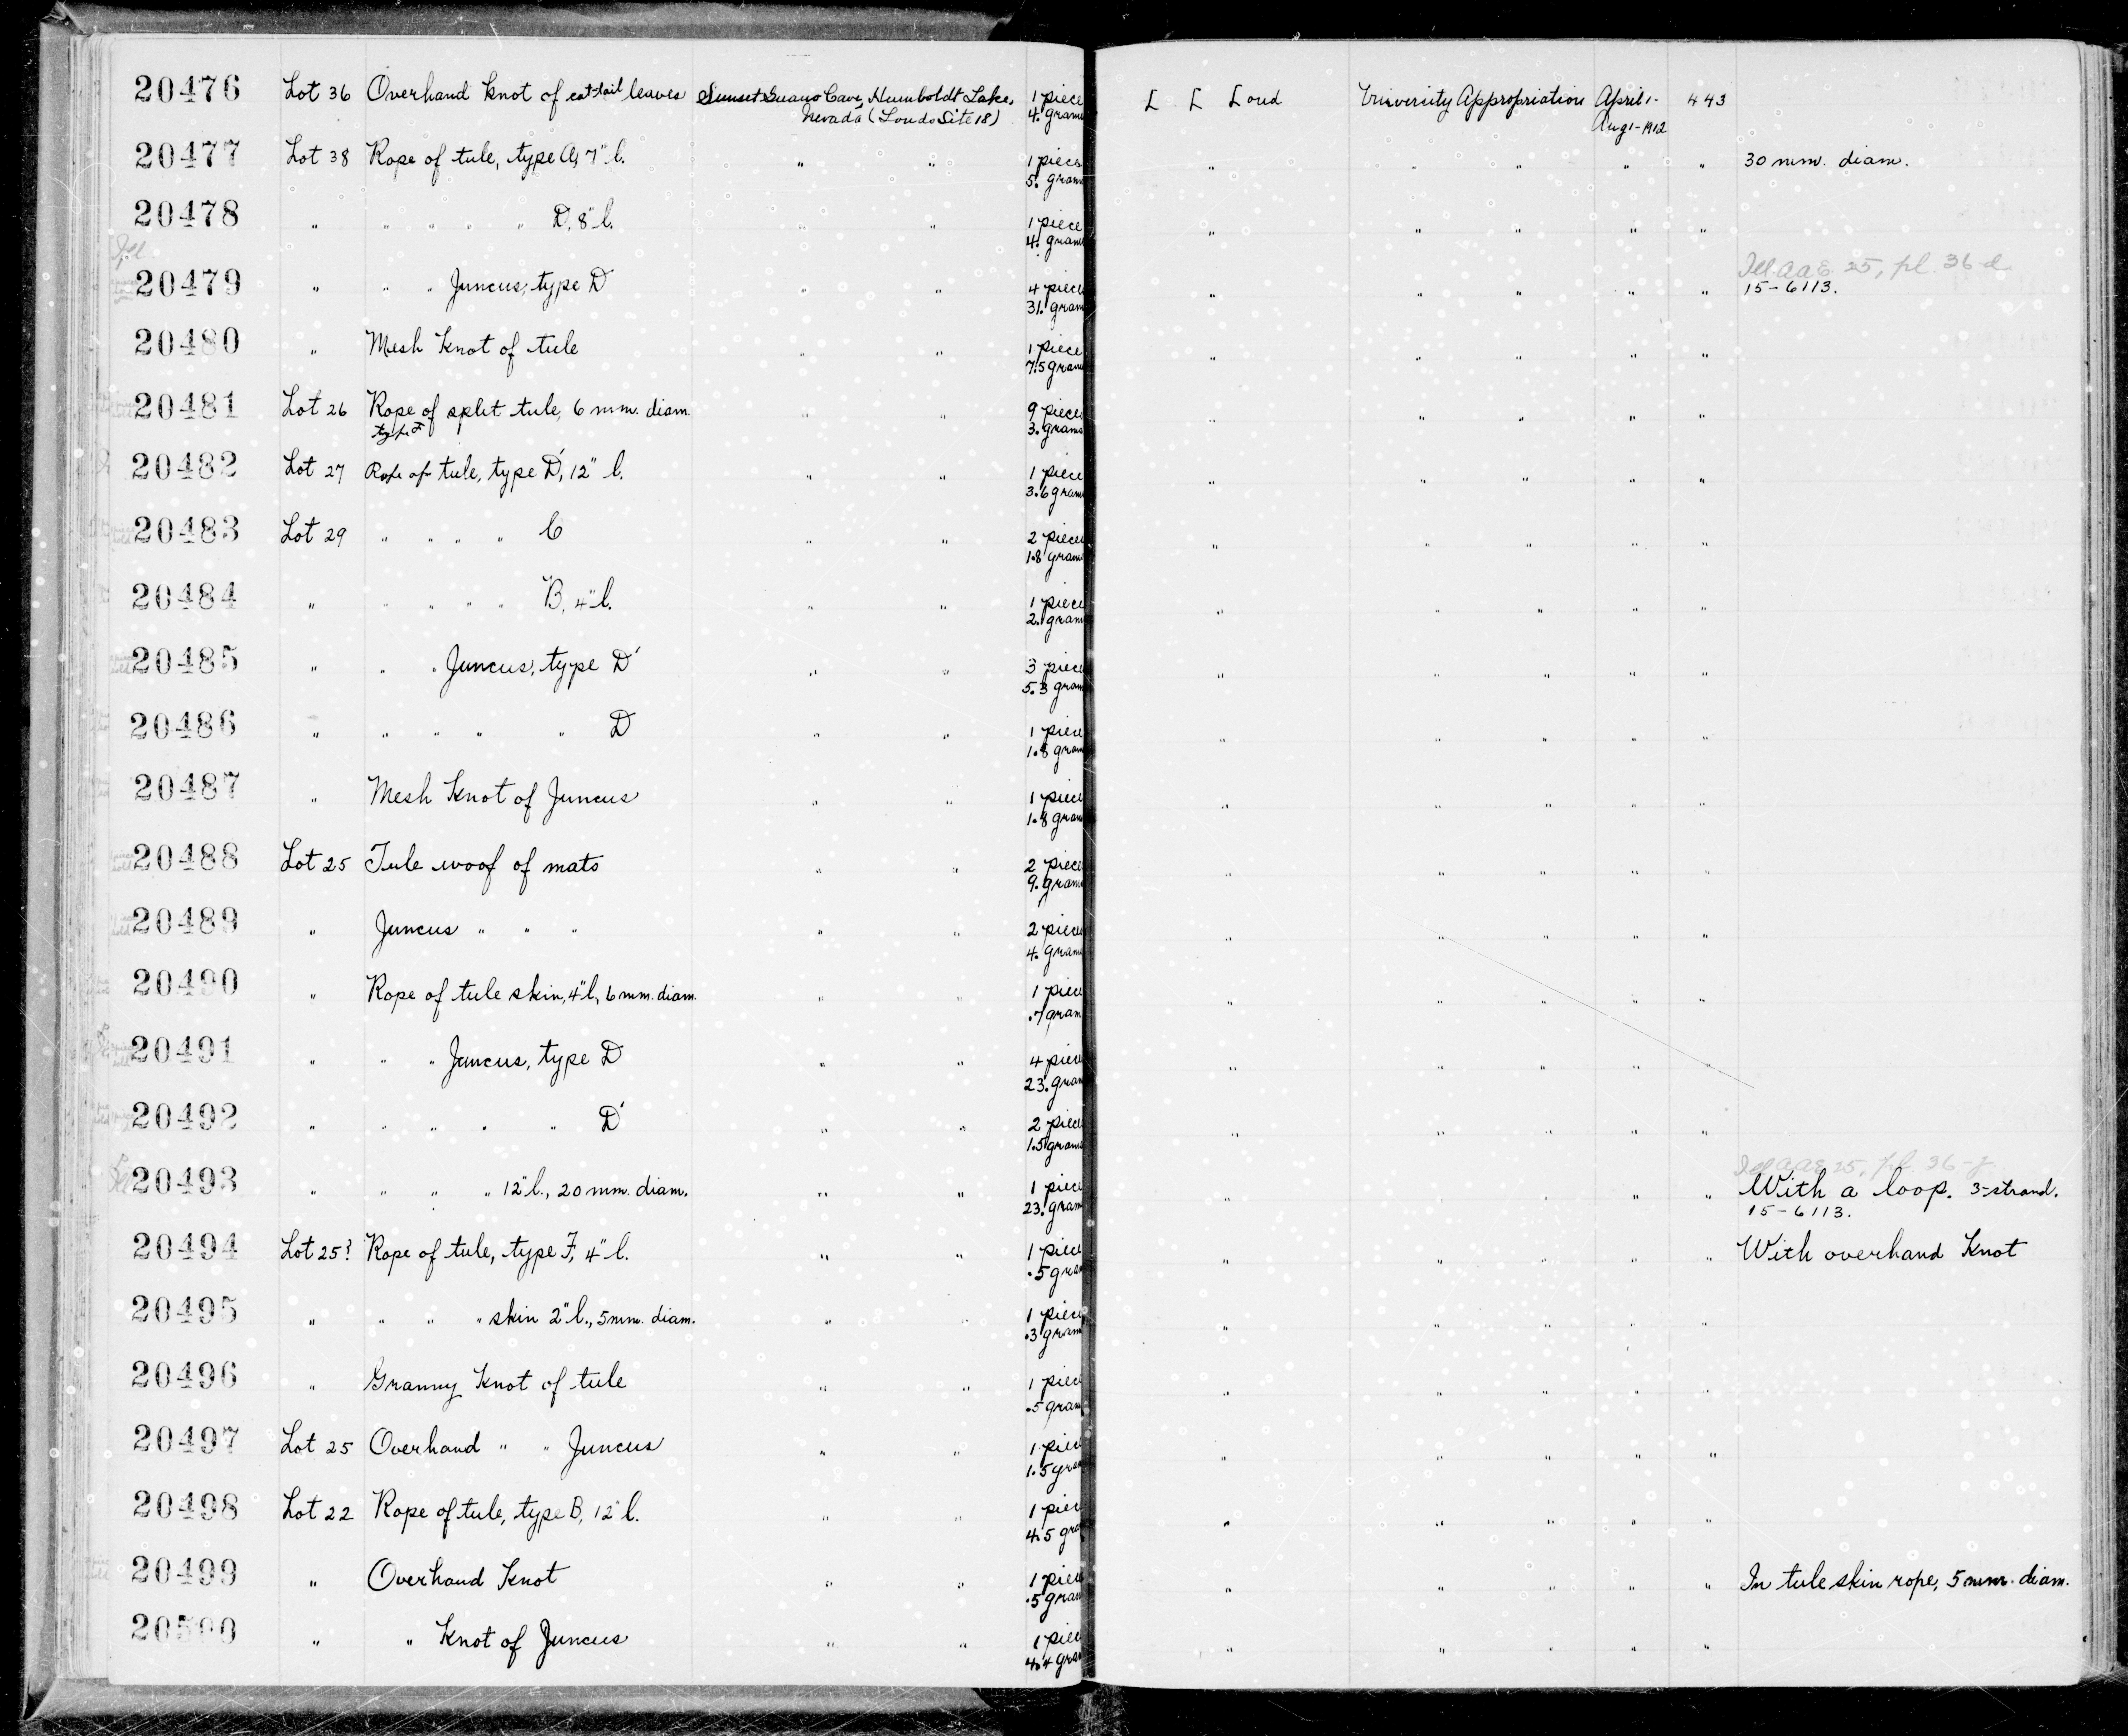 20476 Lot 36 Overhand Knot of cat-tail leaves Sunset Guano Cave, Humboldt Lake, 1 piece L L Loud University Appropriation April 1- 443
Nevada (Louds Site 18) 4. grams Aug 1-1912
20477 Lot 38 Rope of tule, type A, 7" l. " " 1 piece " " " " " 30 mm. diam.
5. grams
20478 " " " " " " D, 8" l. " " 1 piece " " " " "
4. grams
Ill. Ill. AAE 25, pl. 36-d
20479 " " " Juncus, type D " " 4 piece " " " " " 15-6113.
31. gram
20480 " Mesh Knot of tule " " 1 piece " " " " "
7.5 gram
20481 Lot 26 Rope of split tule, 6 mm. diam. " " 9 piece " " " " "
type F 3. grams
20482 Lot 27 Rope of tule, type D', 12" l. " " 1 piece " " " " "
3.6 gram
20483 Lot 29 " " " " C " " 2 piece " " " " "
1.8 gram
20484 " " " " " B, 4" l. " " 1 piece " " " " "
2. gram
20485 " " " Juncus, type D' " " 3 piece " " " " "
5.3 gram
20486 " " " " " D " " 1 piece " " " " "
1.8 gram
20487 " Mesh Knot of Juncus " " 1 piece " " " " "
1.8 gram
20488 Lot 25 Tule woof of mats " " 2 piece " " " " "
9. gram
20489 " Juncus " " " " " 2 piece " " " " "
4. gram
20490 " Rope of tule skin, 4" l, 6 mm. diam. " " 1 piece " " " " "
.7 gram
20491 " " " Juncus, type D " " 4 piece " " " " "
23. gram
20492 " " " " " D' " " 2 piece " " " " "
1.5 grams
Ill AAE 25, pl. 36-
20493 " " " " 12" l., 20 mm. diam. " " 1 piece " " " " " With a loop. 3-strand.
23. gram 15-6113.
20494 Lot 25? Rope of tule, type F, 4" l. " " 1 piece " " " " " With overhand Knot
.5 gram
20495 " " " " skin 2" l., 5 mm. diam. " " 1 piece " " " " "
.3 gram
20496 " Granny Knot of tule " " 1 piece " " " " "
.5 gram
20497 Lot 25 Overhand " " Juncus " " 1 piece " " " " "
1.5 gram
20498 Lot 22 Rope of tule, type B, 12" l. " " 1 piece " " " " "
4.5 gram
20499 " Overhand Knot " " 1 piece " " " " " In tule skin rope, 5 mm. diam.
.5 gram
20500 " " Knot of Juncus " " 1 piece " " " " "
4.4 gram